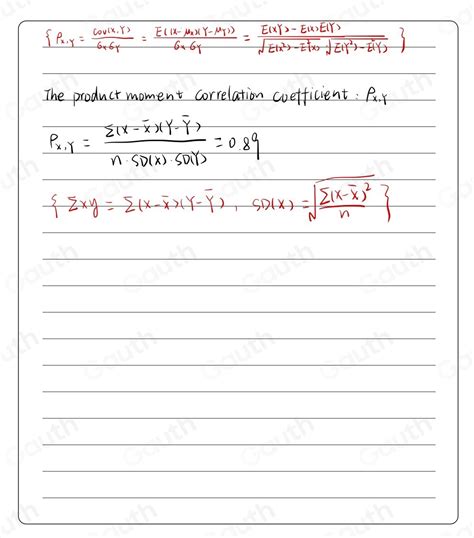 { ρx,y = cov(x,Y) / σx σy = E((x-μx)(Y-μy)) / σx σy = E(xY) - E(x)E(Y) / √E(x²) - E²(x) √E(Y²) - E²(Y) }
The product moment correlation coefficient : ρx,y
ρx,y = Σ(x-x̄)(Y-Ȳ) / n·SD(x)·SD(Y) = 0.89
{ Σxy = Σ(x-x̄)(Y-Ȳ), SD(x) = √Σ(x-x̄)² / n }
Gauth